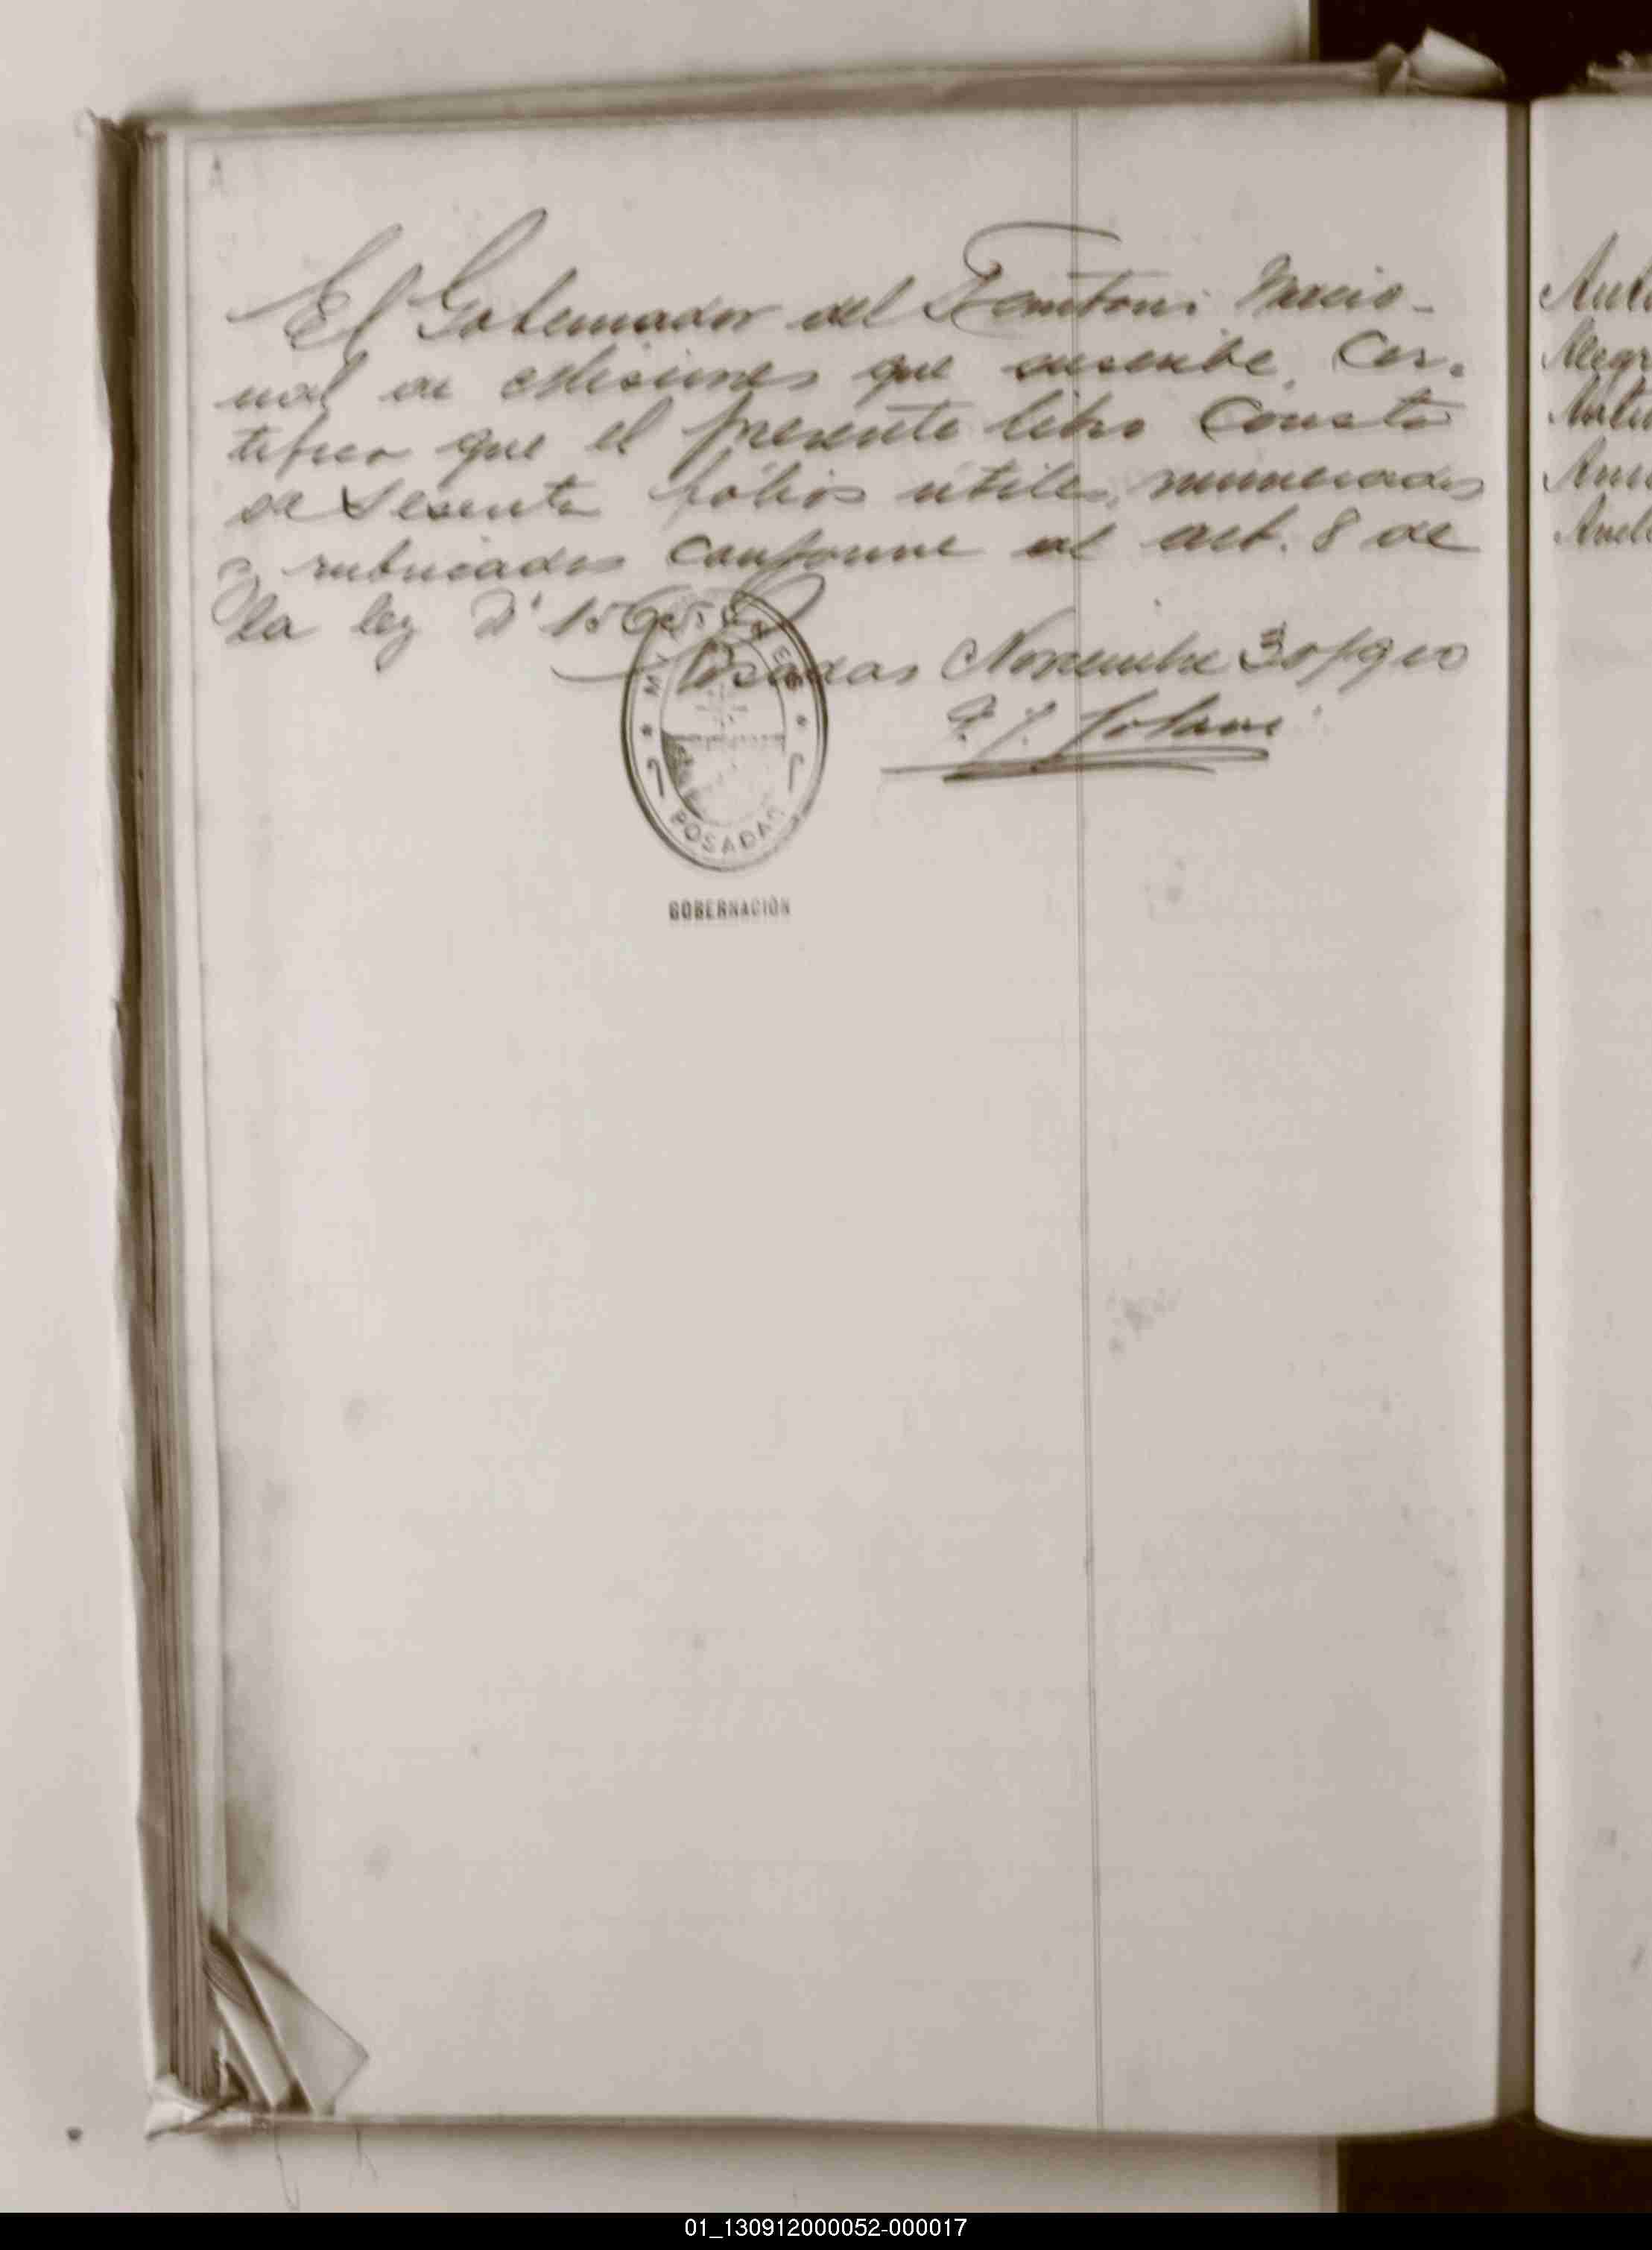 El Gobernador del Territorio Nacio-
nal de Misiones que suscribe, Cer-
tifica que el presente libro Consta
de Sesenta fólios útiles, numerados
y rubricados conforme al art. 8 de
la ley Nº 1565.
Posadas Noviembre 30/910
MISIONES
POSADAS
GOBERNACIÓN
01_130912000052-000017